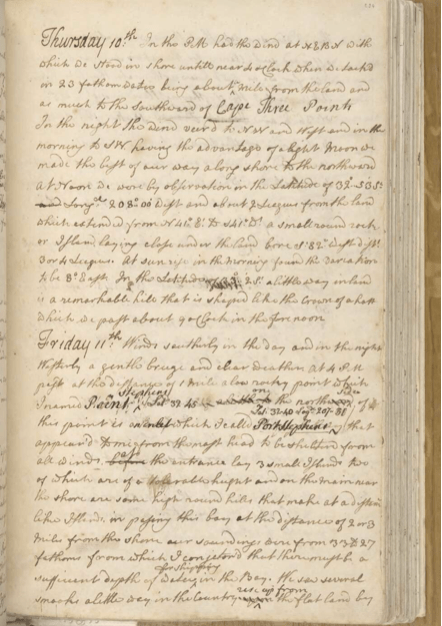 Thursday 10th In the P.M. had the Wind at NEBN with
which we stood in shore untill near 4 oClock when we Tack'd
in 23 fathom water being about Mile from the land and
as much to the Southward of Cape Three Points
In the night the wind veer'd to NW and West and in the
morning to SW having the advantage of a light Moon we
made the best of our way along shore to the northward
at Noon we were by observation in the Latitude of 32° 53 S:
and Longd 208° 00 West and about 2 Leagues from the land
which extended from N 41° E to S 41° W a small round rock
or Island laying close under the land bore S 82° West dist.
3 or 4 Leagues. At sun rise in the morning found the variation
to be 8° East. In the Latitude a little way inland
is a remarkable hill that is shaped like the Crown of a hatt
which we past about 9 oClock in the fore noon
Friday 11th Winds southerly in the day and in the night
Westerly a gentle breeze and clear weather at 4 PM
past at the distance of 1 Mile a low rocky point which
Stephens on side
I named Point Latd 32 45 the north of
Lat 32 40 Longd 207 51
this point is an inlet which I call'd Port Stephens that
appear'd to me from the mast head to be shelterd from
all winds. at before the entrance lay 3 small Islands two
of which are of a tolerable height and on the main near
the shore are some high round hills that make at a distance
like Islands, in passing this bay at the distance of 2 or 3
Miles from the shore our soundings were from 33 to 27
fathoms from which I conjectured that there must be a
for shiping
sufficient depth of water in the Bay. We saw several
rise up from
smooks a little way in the Country the flat land by